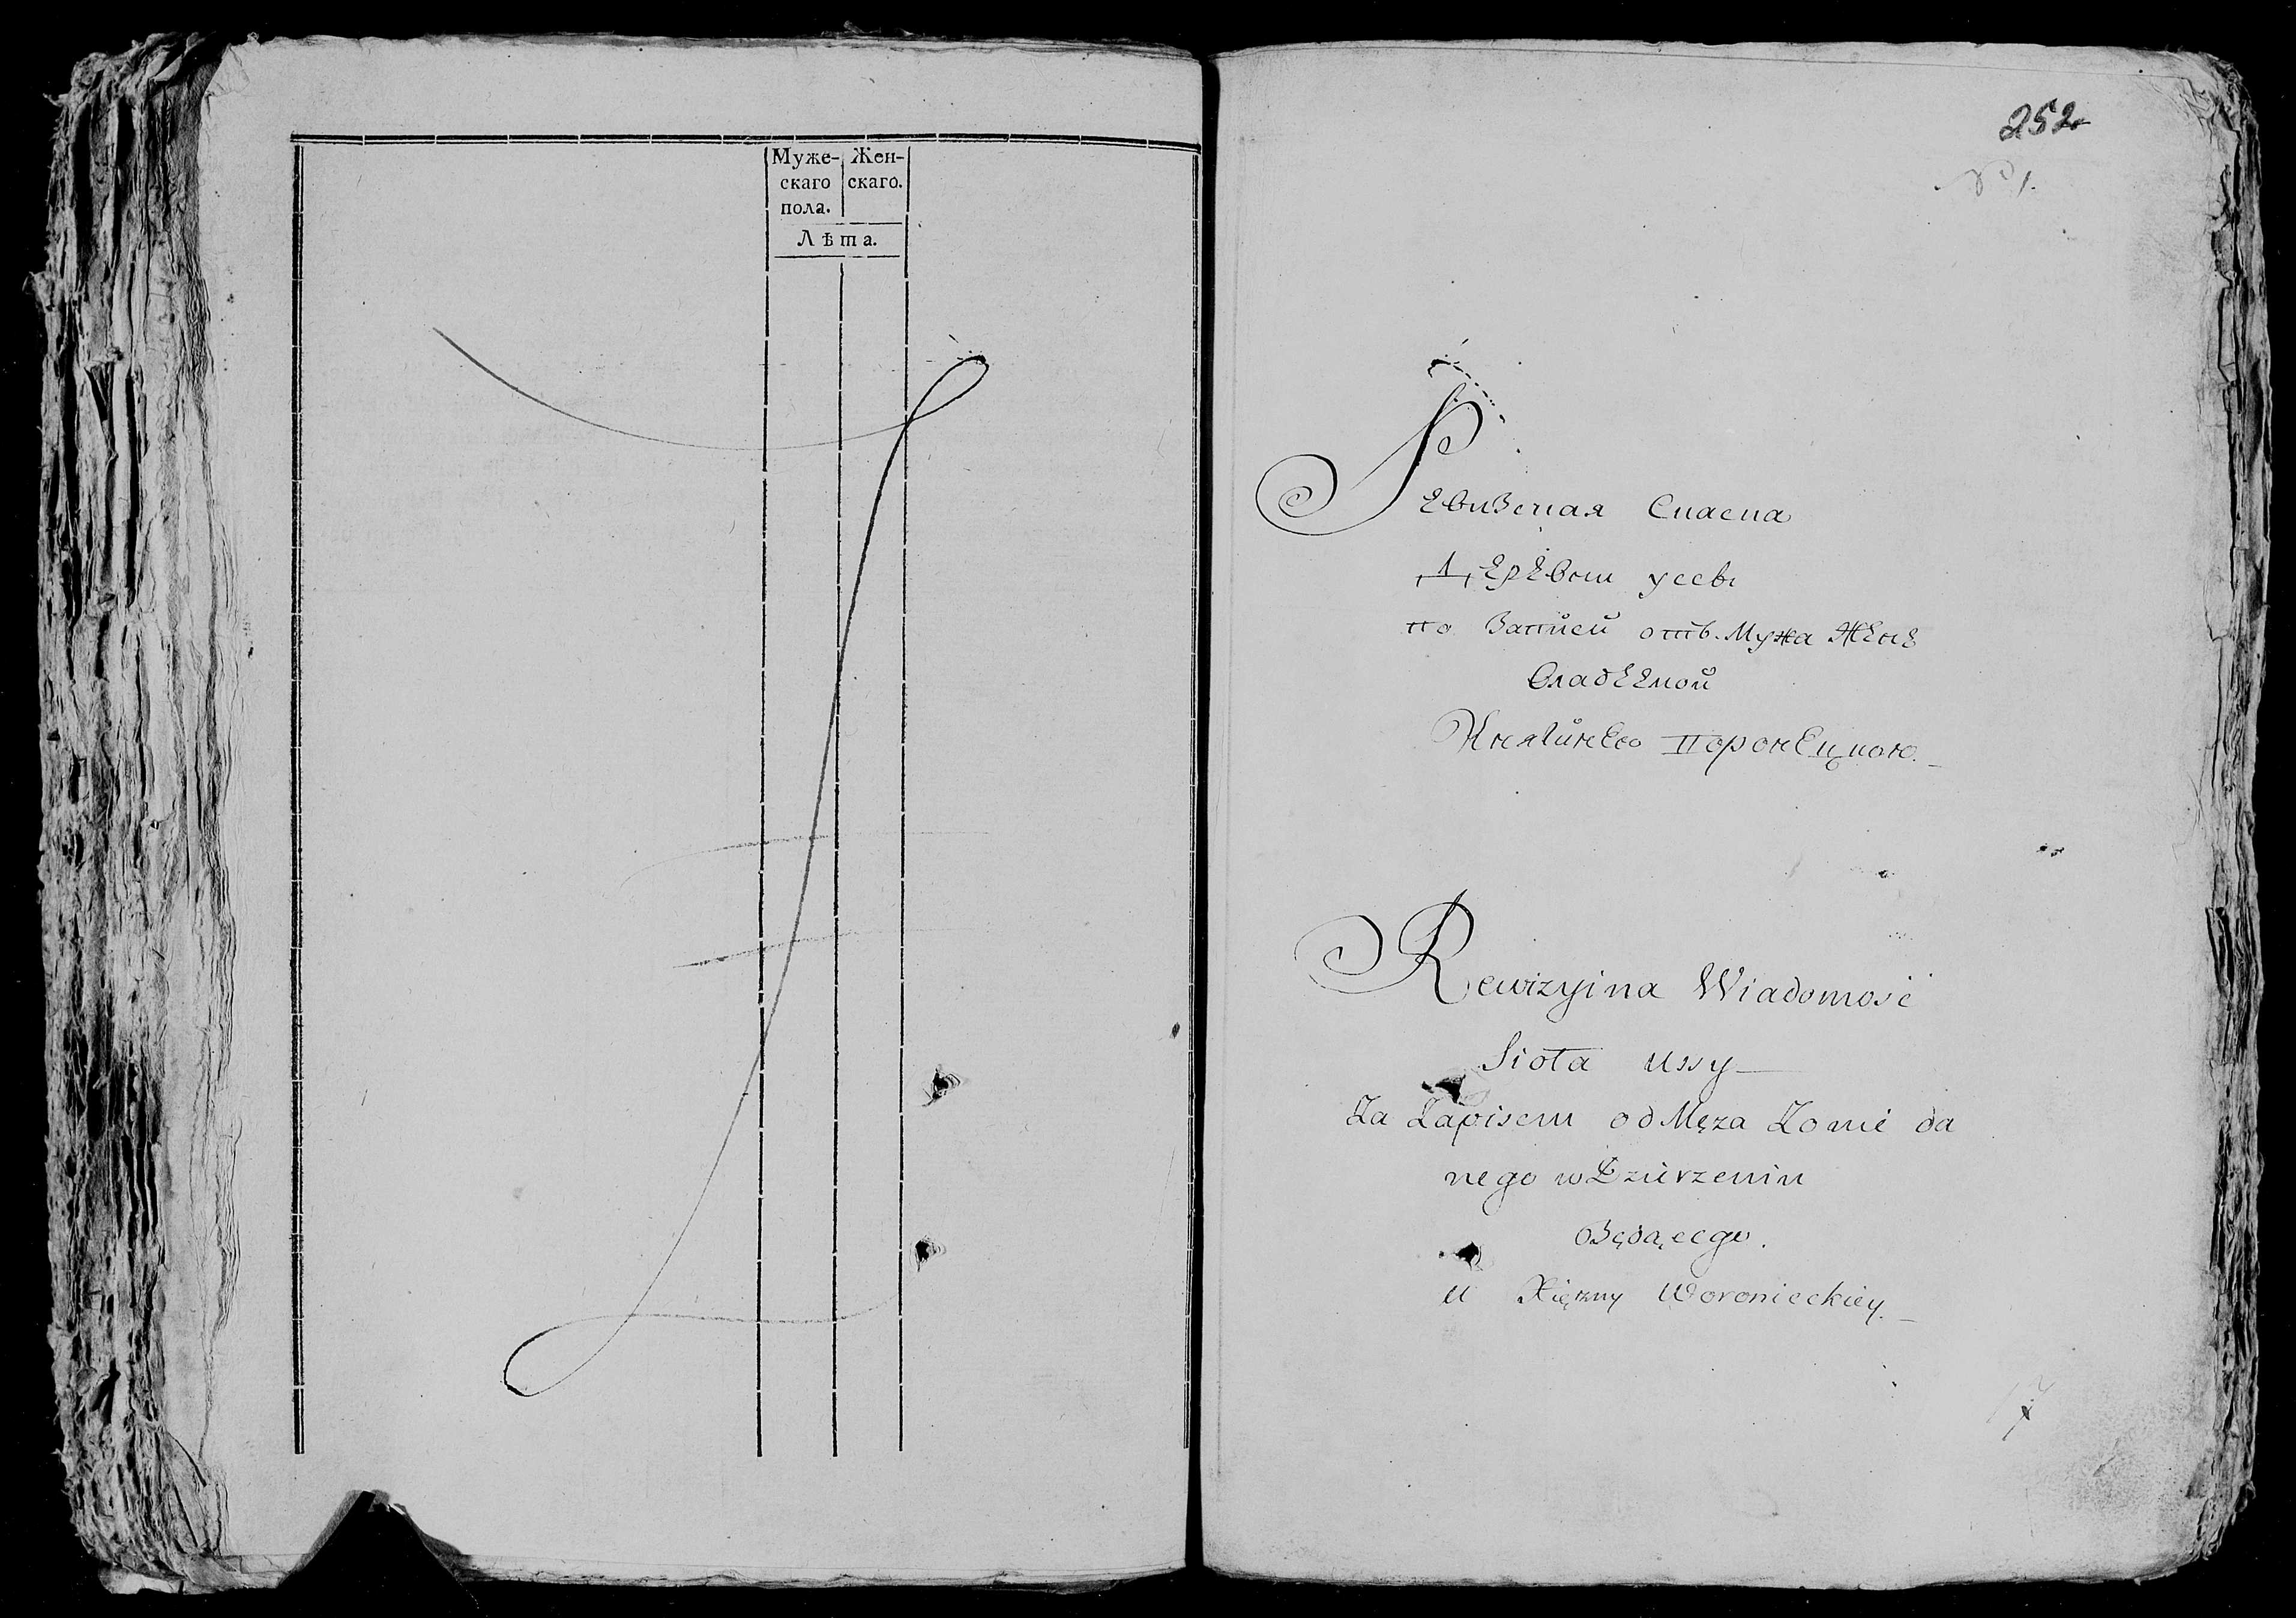 Муже- Жен-
скаго скаго.
пола.
Лѣта.
252
Ревизская Скаска
Деревни уссы
по Записи отъ Мужа Жене
Княгинею Воронецкою.
Rewizyina Wiadomość
Sioła Ussy
Za Zapisem od Męża Żonie da
nego w Dziurzeniu
Będącego.
u Xiężny Woronieckiey.